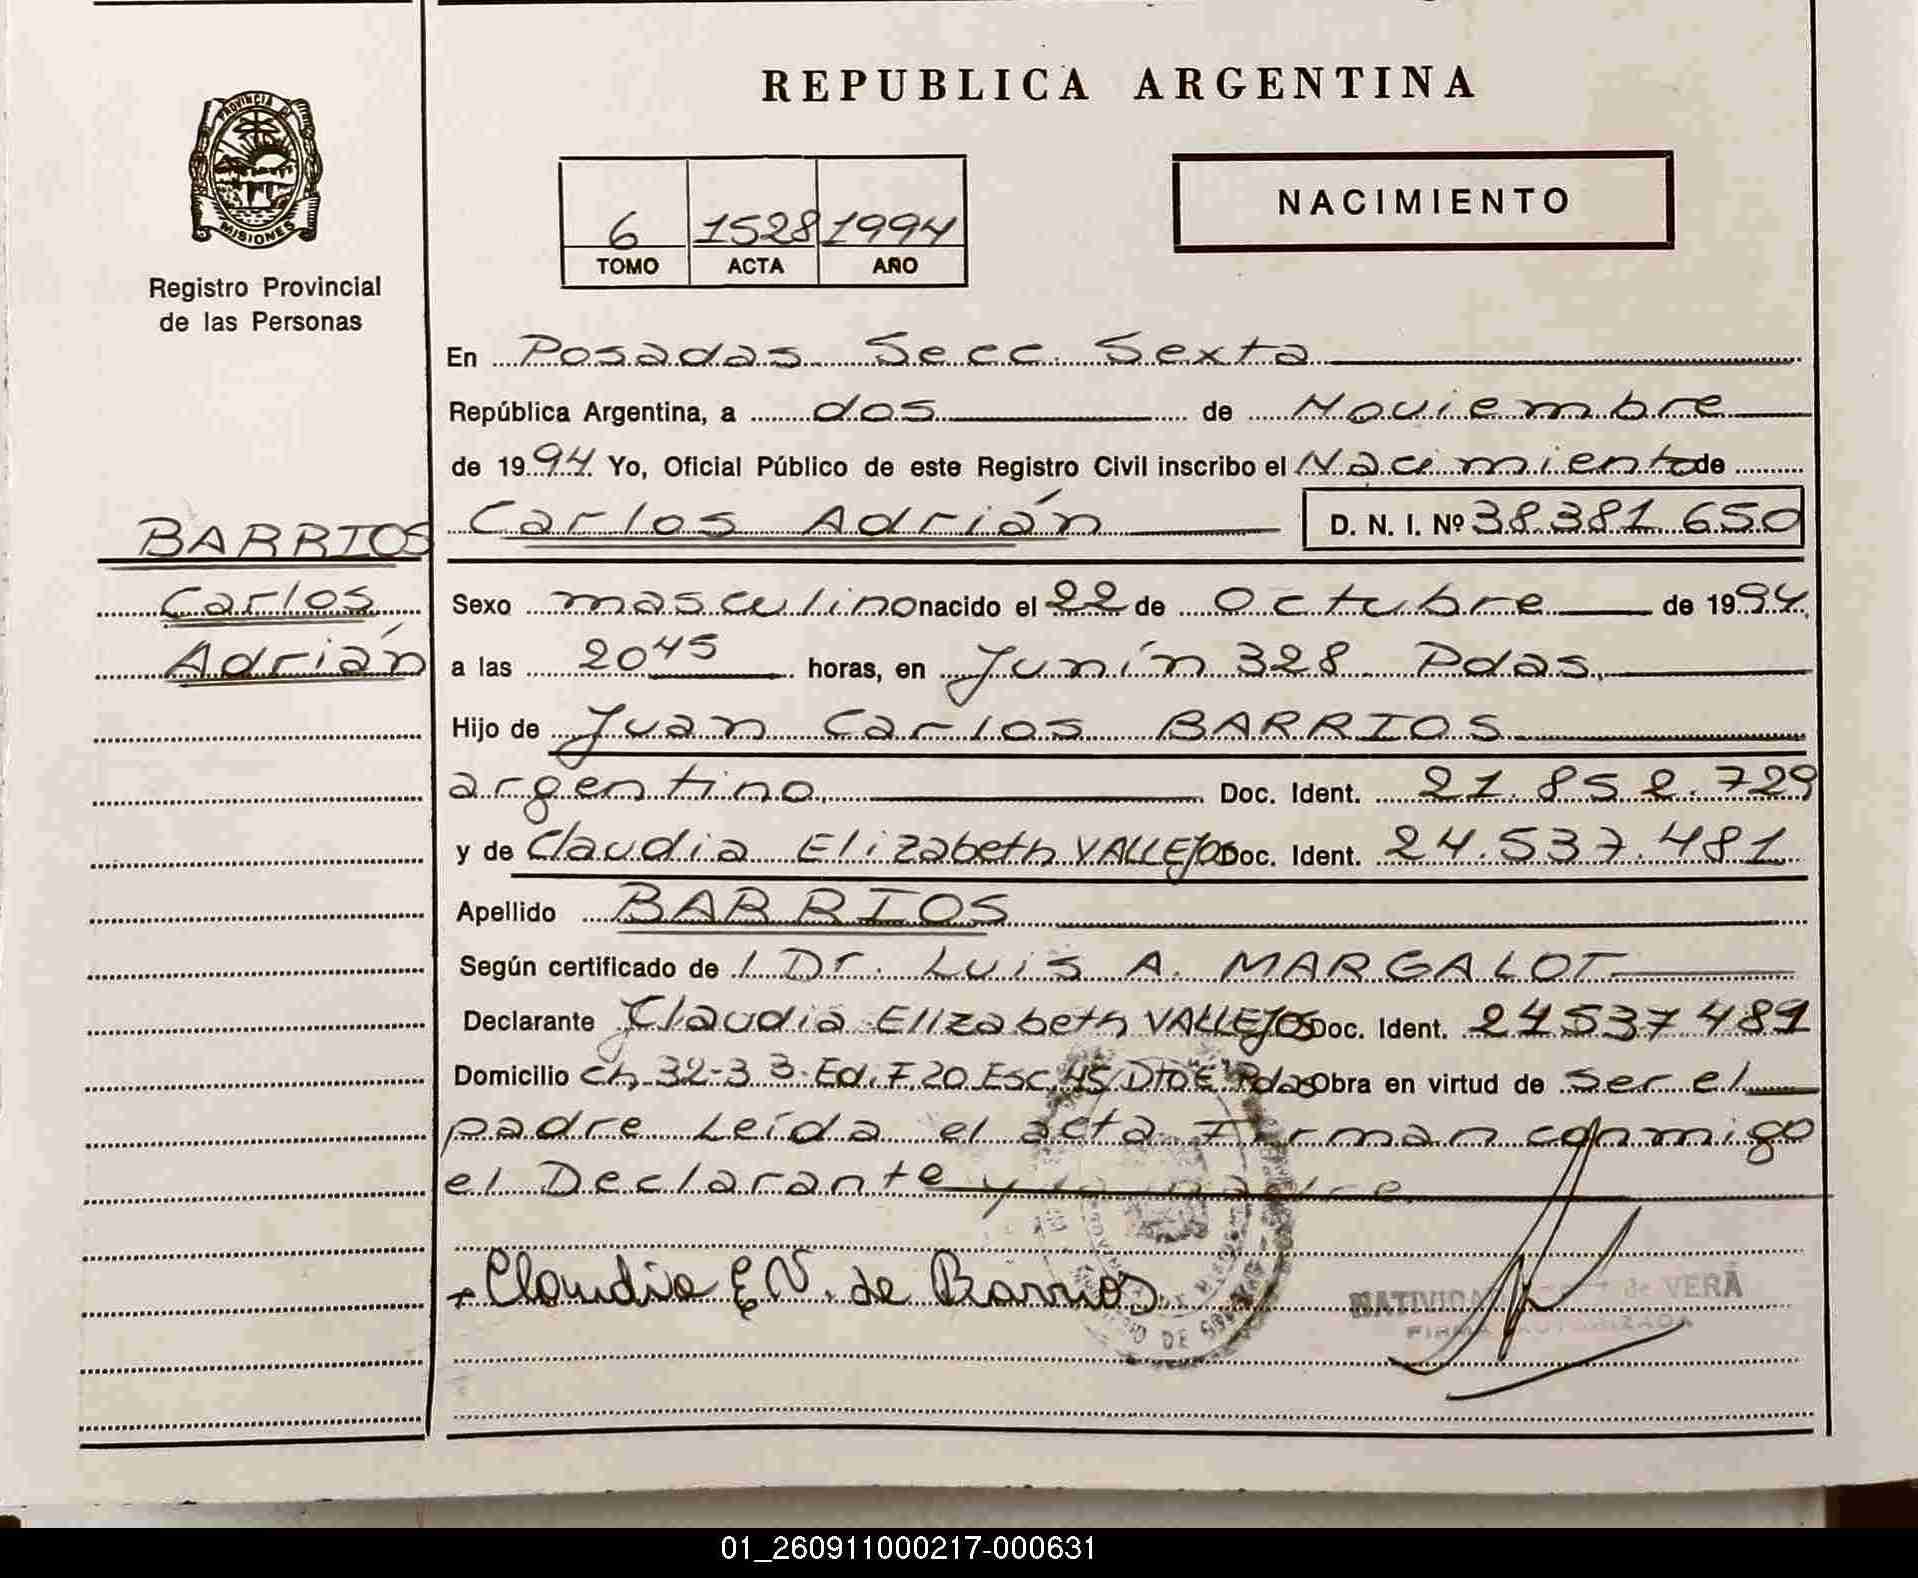 REPUBLICA ARGENTINA
PROVINCIA DE
MISIONES
Registro Provincial
de las Personas
6 1528 1994
TOMO ACTA AÑO
NACIMIENTO
En Posadas Secc. Sexta
República Argentina, a dos de Noviembre
de 1994. Yo, Oficial Público de este Registro Civil inscribo el Nacimiento de
BARRIOS
Carlos
Adrián
Carlos Adrián D. N. I. Nº 38.381.650
Sexo masculino nacido el 22 de Octubre de 1994.
a las 20 45 horas, en Junín 328 Pdas.
Hijo de Juan Carlos BARRIOS
argentino Doc. Ident. 21.852.729
y de Claudia Elizabeth VALLEJOS Doc. Ident. 24.537.481
Apellido BARRIOS
Según certificado de / Dr. LUIS A. MARGALOT
Declarante Claudia Elizabeth VALLEJOS Doc. Ident. 24537481
Domicilio Ch. 32-33-Ed. F20 Esc. 45 Dto E Pdas Obra en virtud de ser el
padre Leída el acta Firman conmigo
el Declarante y la madre
Claudia E V. de Barrios
de VERA
FIRMA AUTORIZADA
01_260911000217-000631